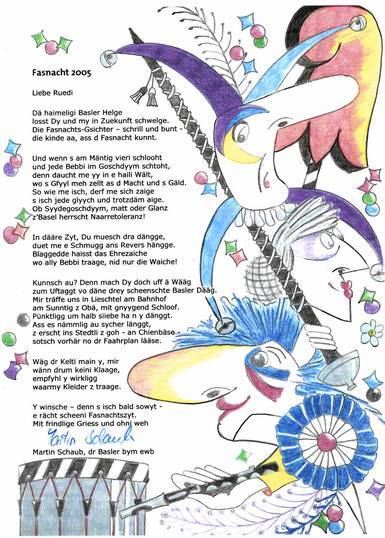 Fasnacht 2005
Liebe Ruedi
Dä haimeligi Basler Helge
losst Dy und my in Zuekunft schwelge.
Die Fasnachts-Gsichter – schrill und bunt -
die kinde aa, ass d Fasnacht kunnt.
Und wenn s am Mäntig vieri schlooht
und jede Bebbi im Goschdyym schtoht,
denn daucht me yy in e haili Wält,
wo s Gfyyl meh zellt as d Macht und s Gäld.
So wie me isch, derf me sich zaige
s isch jede glyych und trotzdäm aige.
Ob Syydegoschdyym, matt oder Glanz
z'Basel herrscht Naarretoleranz!
In dääre Zyt, Du muesch dra dängge,
duet me e Schmugg ans Revers hängge.
Blaggedde haisst das Ehrezaiche
wo ally Bebbi traage, nid nur die Waiche!
Kunnsch au? Denn mach Dy doch uff a Wääg
zum Uftaggt vo däne drey scheenschte Basler Dääg.
Mir träffe uns in Lieschtel am Bahnhof
am Sunntig z Obä, mit gnyygend Schloof.
Pünktlig um halb siiebe ha n y dänggt.
Ass es nämmlig au sycher länggt,
z erscht ins Stedtli z goh - an Chienbäse -
sotsch vorhär no dr Faahrplan lääse.
Wäg dr Kelti main y, mir
wänn drum keini Klaage,
empfyhl y wirkligg
waarmy Kleider z traage.
Y winsche – denn s isch bald sowyt -
e rächt scheeni Fasnachtszyt.
Mit frindlige Griess und ohni weh
Martin Schaub
Martin Schaub, dr Basler bym ewb